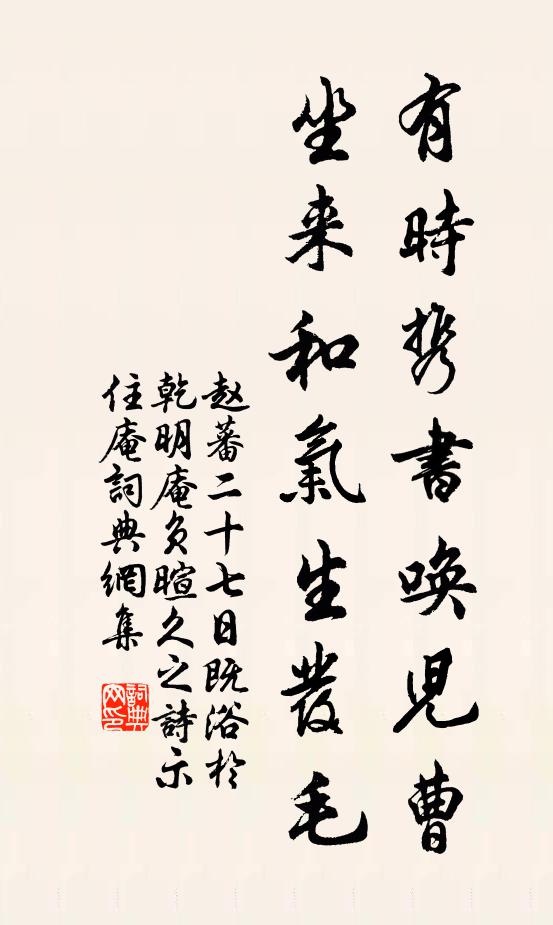 有時携書喚児曹
坐来和氣生發毛
赵蕃二十七日既浴於
乾明庵负暄久之詩示
住庵詞典網集
詞典网印